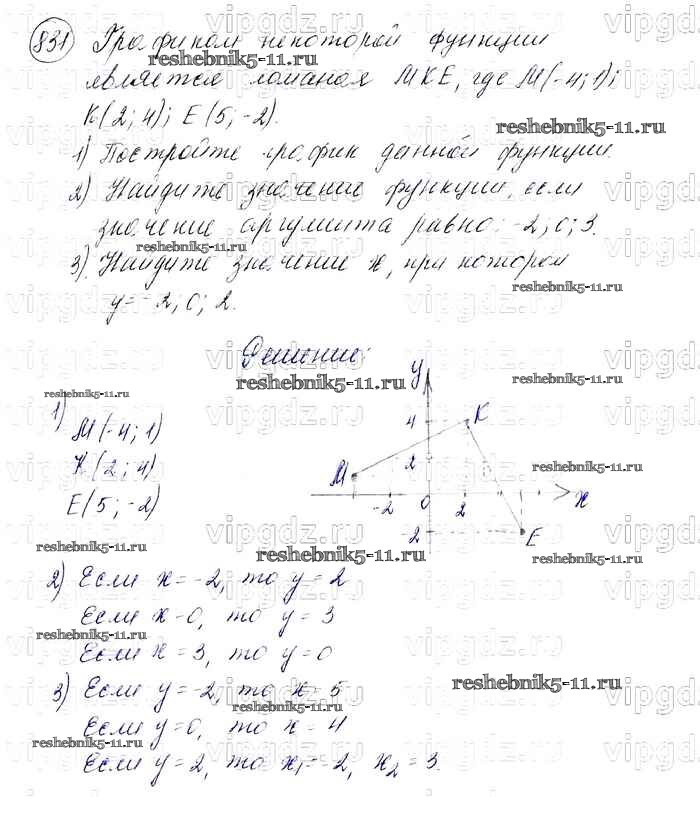 831 Графиком некоторой функции
является ломаная МКЕ, где М(-4; 1);
К(2; 4); Е(5; -2).
1) Постройте график данной функции.
2) Найдите значение функции, если
значение аргумента равно: -2; 0; 3.
3) Найдите значение х, при котором
у = -2; 0; 2.
Решение:
1)
М(-4; 1)
К(2; 4)
Е(5; -2)
у
4
К
2
М
-2
0
2
х
-2
Е
2) Если х = -2, то у = 2
Если х = 0, то у = 3
Если х = 3, то у = 0
3) Если у = -2, то х = 5
Если у = 0, то х = 4
Если у = 2, то х₁ = -2, х₂ = 3.
reshebnik5-11.ru
vipgdz.ru